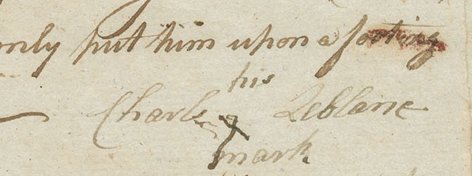 only put him upon a footing
his
Charles X Leblanc
mark